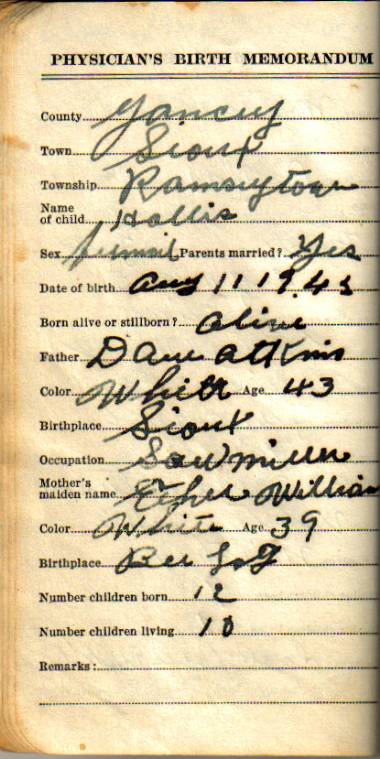 PHYSICIAN'S BIRTH MEMORANDUM
County Yancey
Town Sioux
Township Ramseytown
Name
of child Hollis
Sex femail Parents married? Yes
Date of birth Aug 11 1943
Born alive or stillborn? alive
Father Dave Atkins
Color White Age 43
Birthplace Sioux
Occupation Sawmiller
Mother's
maiden name William
Color White Age 39
Birthplace Bee
Number children born 12
Number children living 10
Remarks: